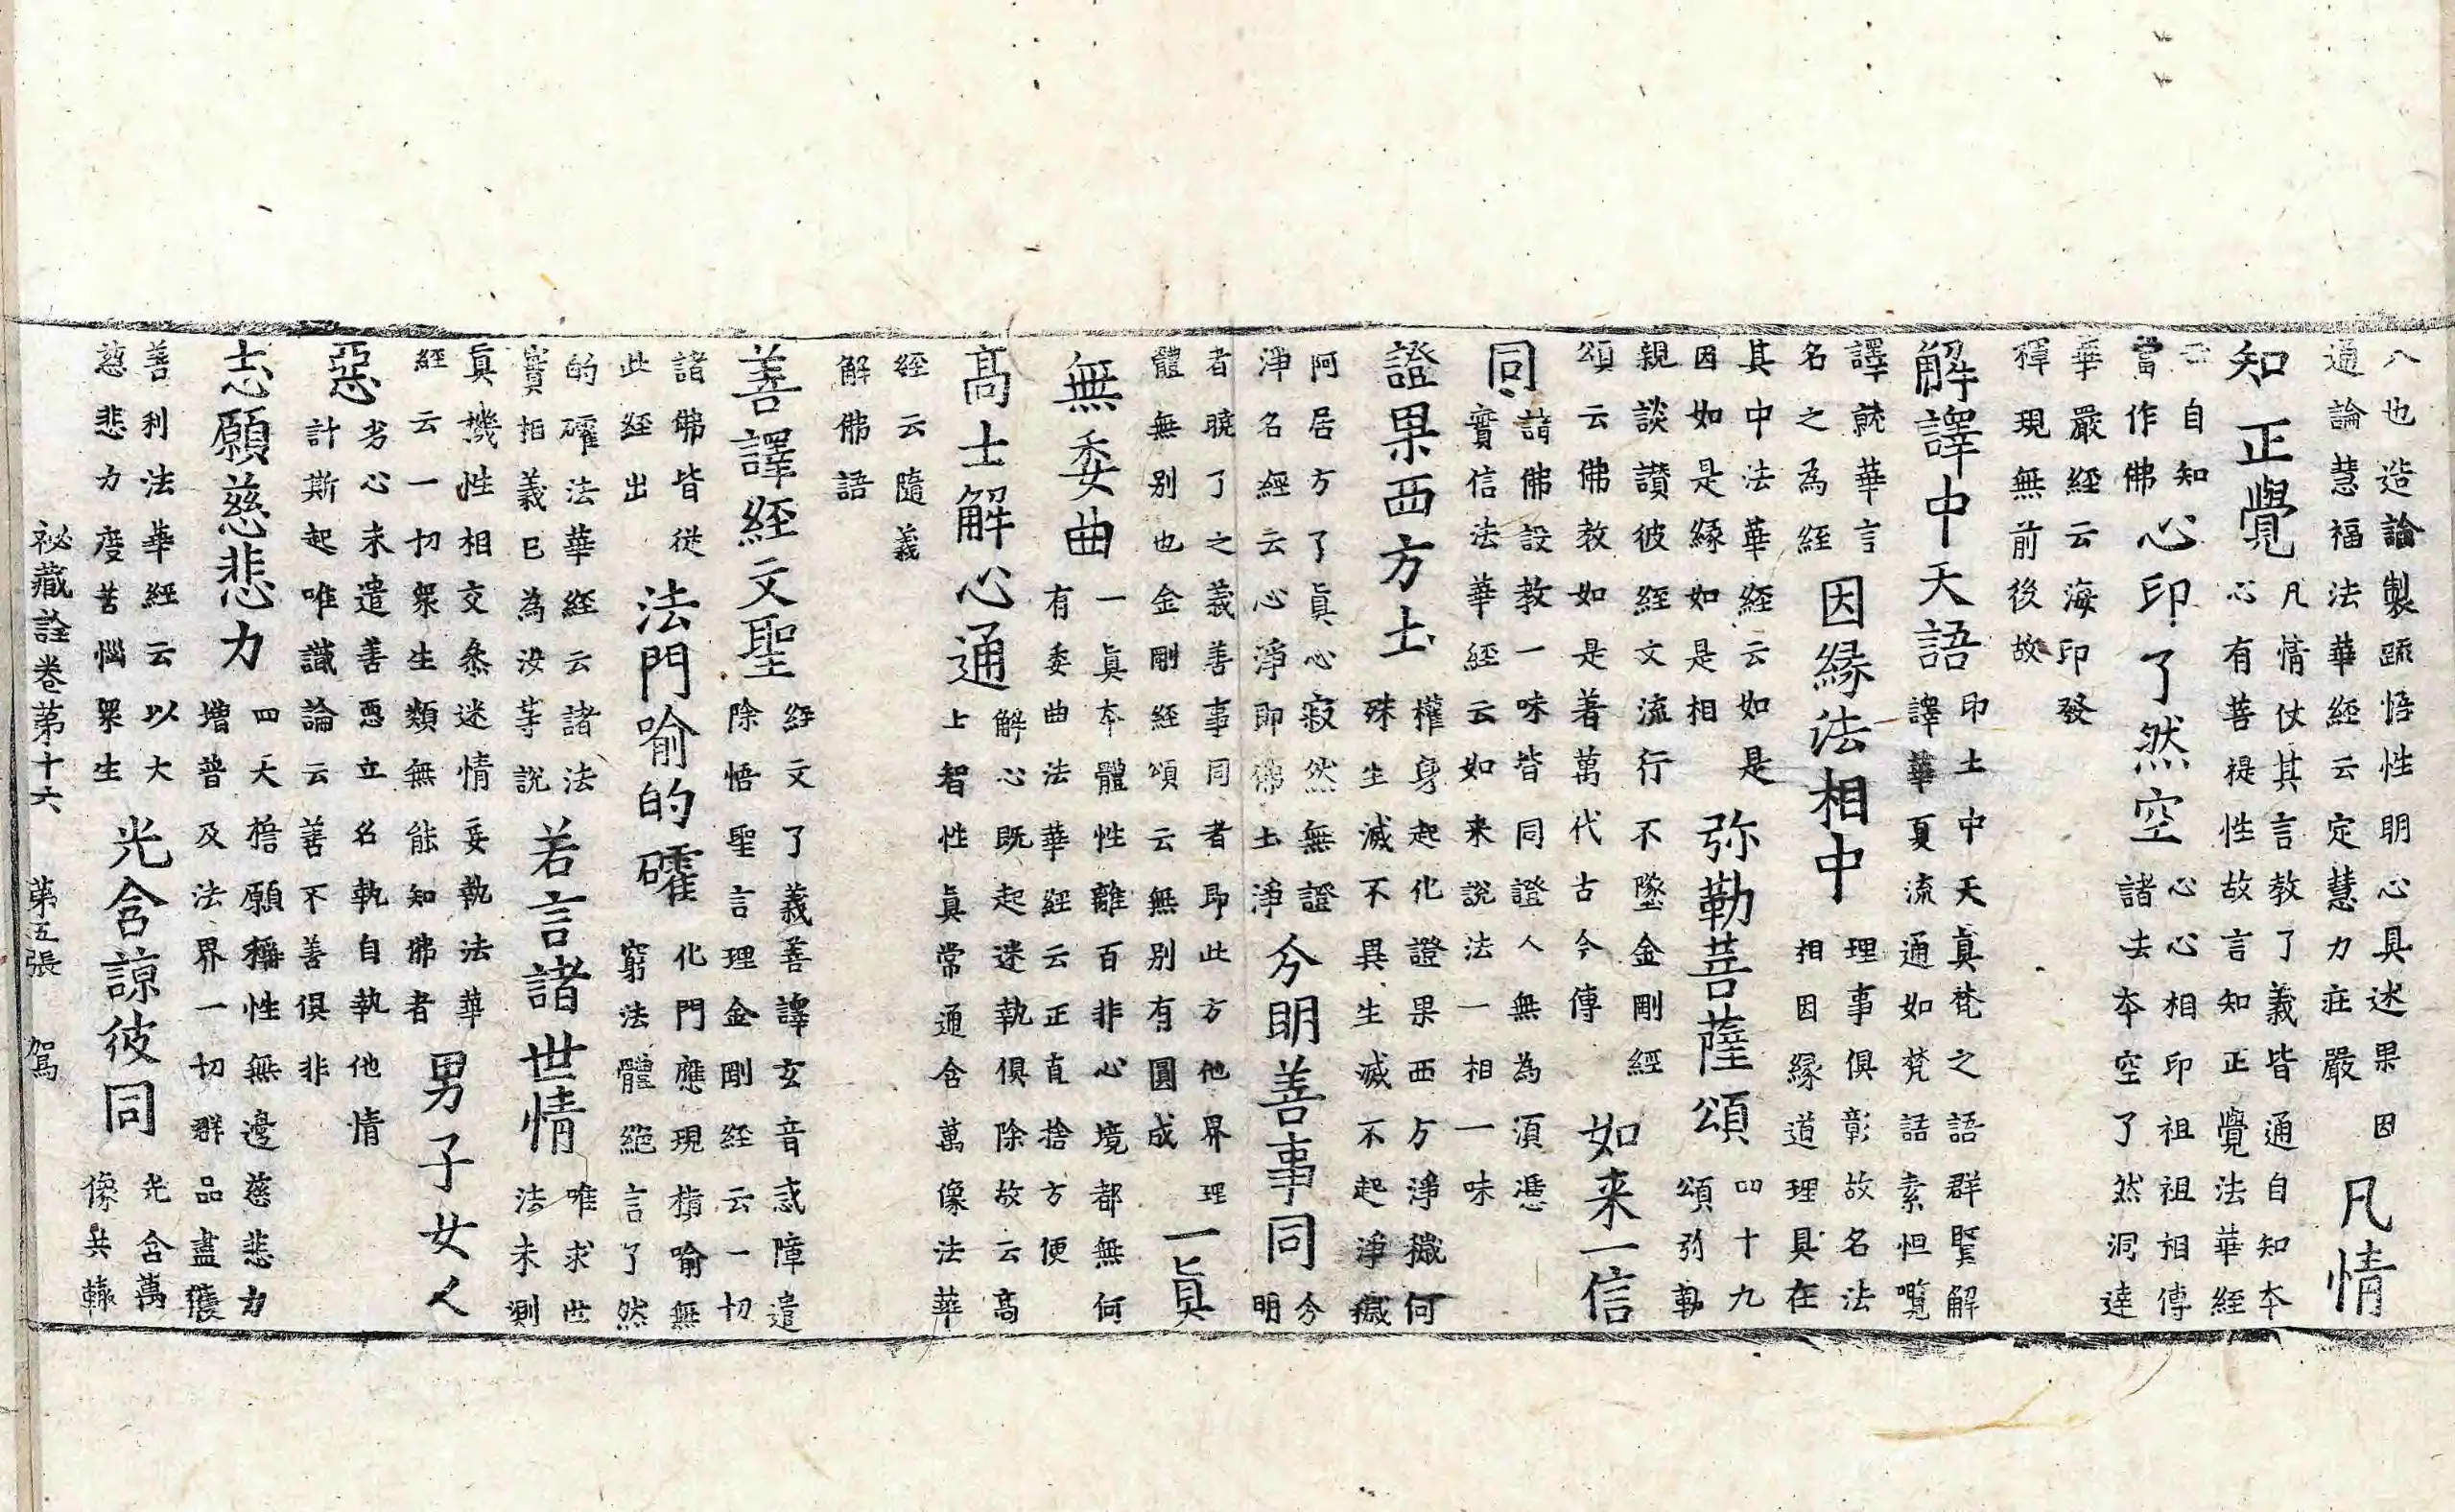 八也造論製疏悟性明心具述果因
通論慧福法華經云定慧力莊嚴
凡情
知正覺
凡情仗其言教了義皆通自知本
心有菩提性故言知正覺法華經
云自知
當作佛
心印了然空
心心相印祖祖相傳
諸法本空了然洞達
華嚴經云海印發
禪現無前後故
解譯中天語
印土中天真梵之語群賢解
譯華夏流通如梵語素怛嚂
譯就華言
名之為經
因緣法相中
理事俱彰故名法
相因緣道理具在
其中法華經云如是
因如是緣如是相
弥勒菩薩頌
四十九
頌弥勒
親談讃彼經文流行不墜金剛經
頌云佛教如是著萬代古今傳
如来一信
同
諸佛設教一味皆同證人無為須憑
實信法華經云如来説法一相一味
證果西方土
權身起化證果西方淨穢何
殊生滅不異生滅不起淨穢
阿居方了真心寂然無證
淨名經云心淨即佛土淨
今明善事同
今
明
者曉了之義善事同者即此方他界理
體無别也金剛經頌云無别有圓成
一真
無委曲
一真本體性離百非心境都無何
有委曲法華經云正直捨方便
高士解心通
解心既起迷執俱除故云高
上智性真常通含萬像法華
經云隨義
解佛語
善譯經文聖
經文了義善譯玄音惑障遣
除悟聖言理金剛經云一切
諸佛皆從
此經出
法門喻的確
化門應現楷喻無
窮法體絕言了然
的確法華經云諸法
實相義已為汝等説
若言諸世情
唯求世
法未測
真機性相交叅迷情妄執法華
經云一切衆生類無能知佛者
男子女人
惡
劣心未遣善惡立名執自執他情
計斯起唯識論云善不善俱非
志願慈悲力
四大捨願稱性無邊慈悲力
增普及法界一切群品盡獲
善利法華經云以大
慈悲力度苦惱衆生
光含諒彼同
光含萬
像共轅
祕藏詮卷第十六　第五張　駕